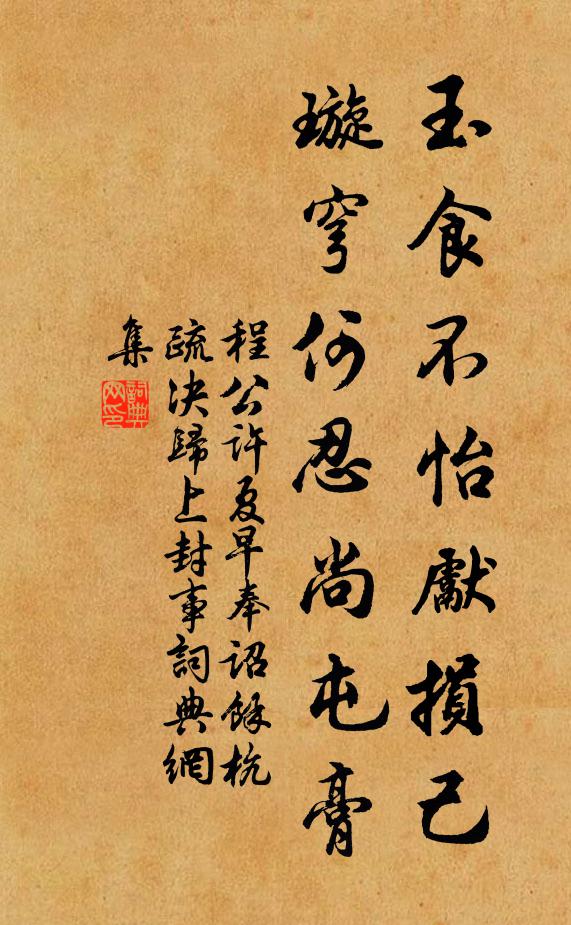 玉食不怡獻損己
璇穹何忍尚屯膏
程公許夏旱奉詔餘杭
疏決歸上封事詞典網
集
詞典網印